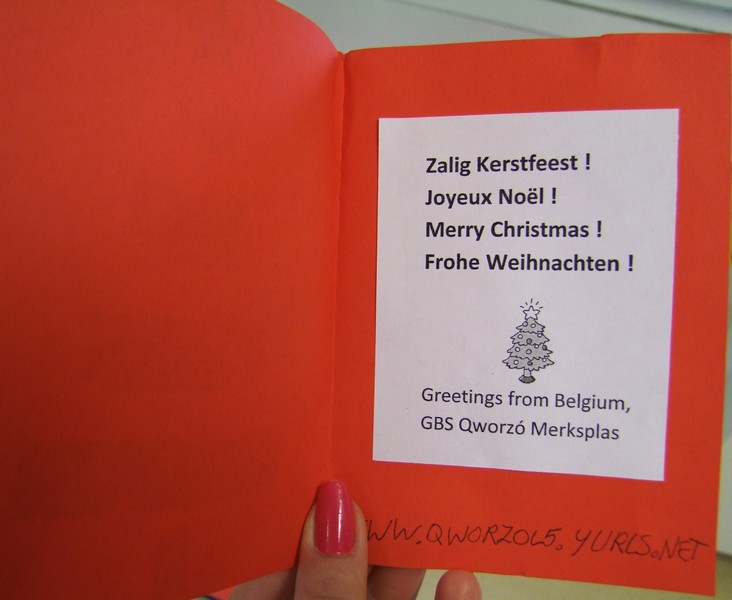 Zalig Kerstfeest !
Joyeux Noël !
Merry Christmas !
Frohe Weihnachten !
Greetings from Belgium,
GBS Qworzó Merksplas
WW.QWORZOL5.YURLS.NET